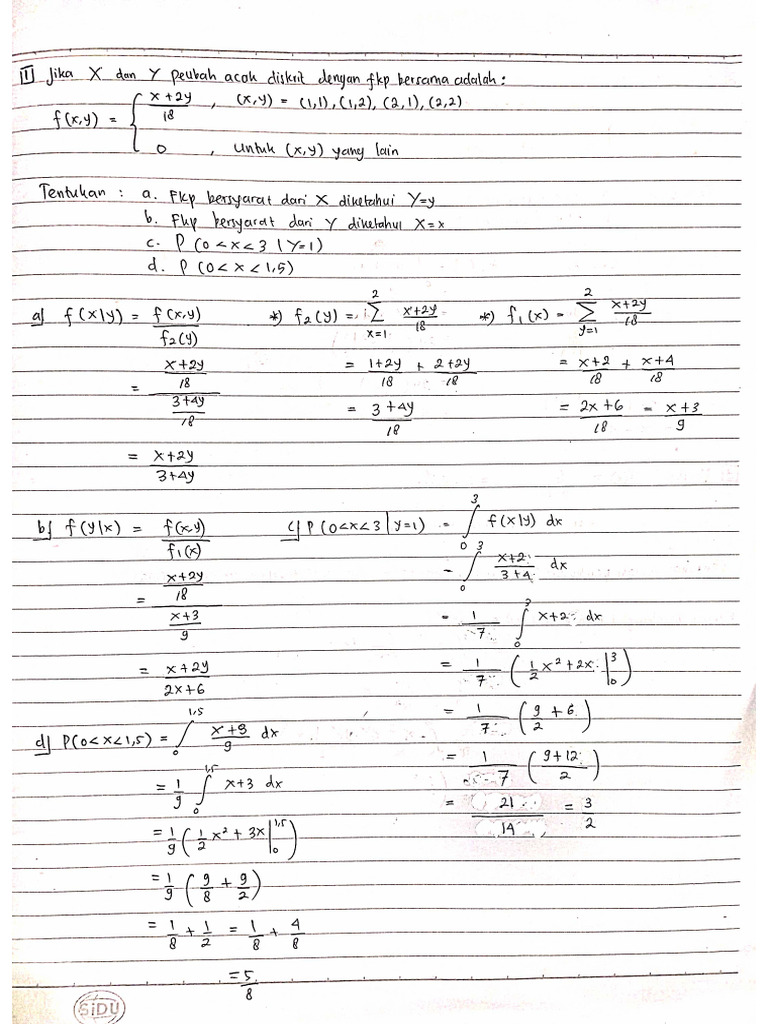 1 Jika X dan Y peubah acak diskrit dengan fkp bersama adalah :
f(x,y) = { x+2y/18 , (x,y) = (1,1), (1,2), (2,1), (2,2)
0 , untuk (x,y) yang lain
Tentukan : a. Fkp bersyarat dari X diketahui Y=y
b. Fkp bersyarat dari Y diketahui X=x
c. P (0<x<3 | Y=1)
d. P (0<x<1,5)
a) f(x|y) = f(x,y)/f₂(y)
= (x+2y/18)/(3+4y/18)
= x+2y/3+4y
*) f₂(y) = ∑_{x=1}^{2} x+2y/18
= 1+2y/18 + 2+2y/18
= 3+4y/18
*) f₁(x) = ∑_{y=1}^{2} x+2y/18
= x+2/18 + x+4/18
= 2x+6/18 = x+3/9
b) f(y|x) = f(x,y)/f₁(x)
= (x+2y/18)/(x+3/9)
= x+2y/2x+6
c) P (0<x<3 | y=1) = ∫₀³ f(x|y) dx
= ∫₀³ x+2/3+4 dx
= 1/7 ∫₀³ x+2 dx
= 1/7 (1/2 x² + 2x |₀³)
= 1/7 (9/2 + 6)
= 1/7 (9+12/2)
= 21/14 = 3/2
d) P(0<x<1,5) = ∫₀^{1,5} x+3/9 dx
= 1/9 ∫₀^{1,5} x+3 dx
= 1/9 (1/2 x² + 3x |₀^{1,5})
= 1/9 (9/8 + 9/2)
= 1/8 + 1/2 = 1/8 + 4/8
= 5/8
SiDU